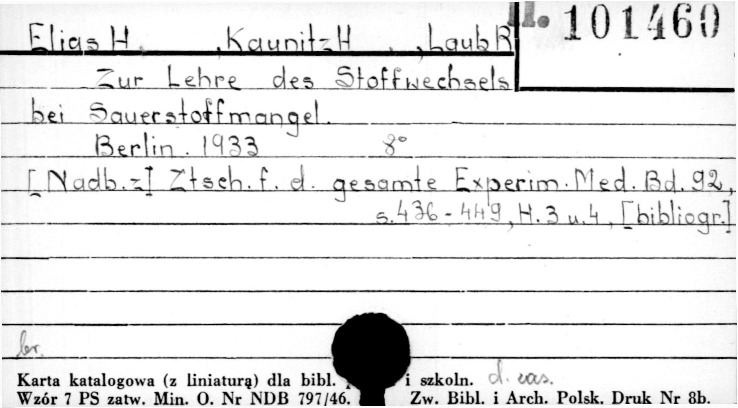 Elias H. , Kaunitz H. , Laub R
II. 101460
Zur Lehre des Stoffwechsels
bei Sauerstoffmangel.
Berlin. 1933 8°
[Nadb. z] Ztsch. f. d. gesamte Experim. Med. Bd. 92,
s. 436-449, H. 3 u. 4, [bibliogr.]
br.
Karta katalogowa (z liniaturą) dla bibl. i szkoln. d. cas.
Wzór 7 PS zatw. Min. O. Nr NDB 797/46. Zw. Bibl. i Arch. Polsk. Druk Nr 8b.